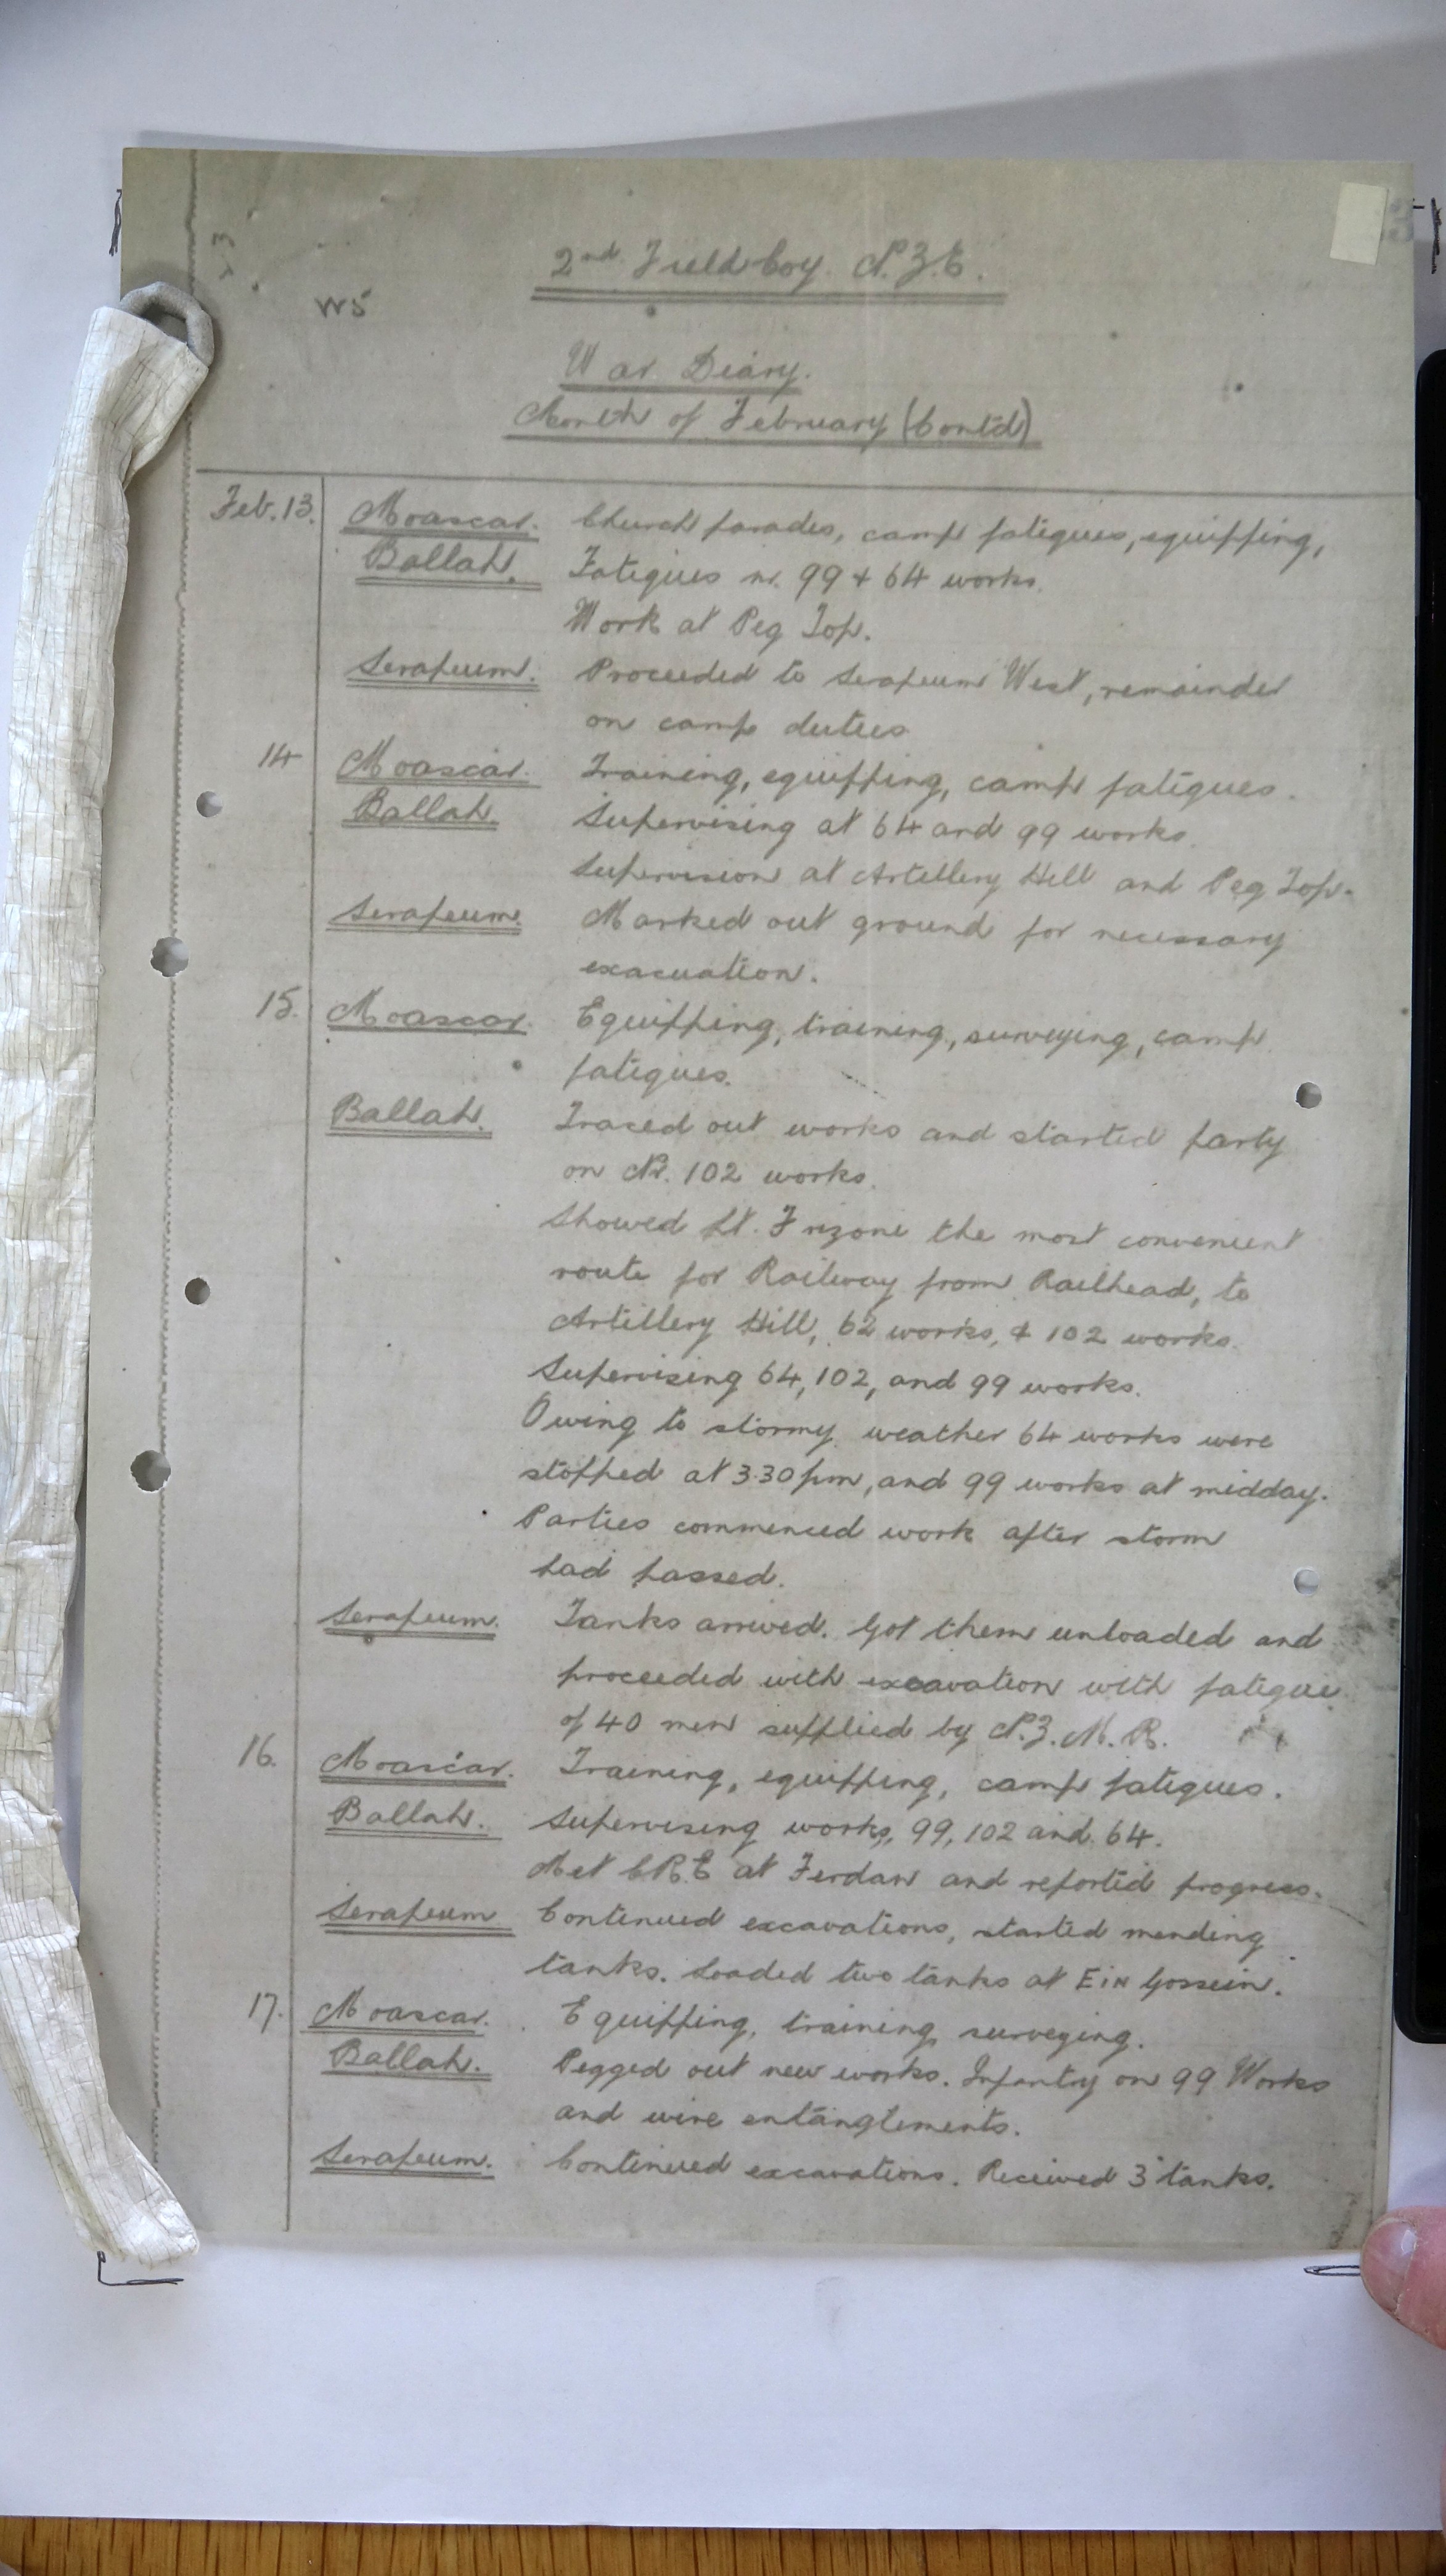 2nd Field Coy. N.Z.E.
W5
War Diary.
Month of February (Contd)
Feb. 13. Moascar. Church parades, camp fatigues, equipping,
Ballah. Fatigues nr. 99 & 64 works.
Work at Peg Top.
Serapeum. Proceeded to Serapeum West, remainder
on camp duties
14 Moascar. Training, equipping, camp fatigues.
Ballah. Supervising at 64 and 99 works.
Supervision at Artillery Hill and Peg Top.
Serapeum. Marked out ground for necessary
exacuation.
15. Moascar. Equipping, training, surveying, camp
fatigues.
Ballah. Traced out works and started party
on Nr. 102 works.
Showed Lt. the most convenient
route for Railway from Railhead, to
Artillery Hill, 62 works, & 102 works.
Supervising 64, 102, and 99 works.
Owing to stormy weather 64 works were
stopped at 3.30 pm, and 99 works at midday.
Parties commenced work after storm
had passed.
Serapeum. Tanks arrived. Got them unloaded and
proceeded with excavation with fatigue
of 40 men supplied by N.Z.M.R.
16. Moascar. Training, equipping, camp fatigues.
Ballah. Supervising works, 99, 102 and 64.
Met C.R.E at Ferdan and reported progress.
Serapeum Continued excavations, started mending
tanks. Loaded two tanks at Ein Gossein.
17. Moascar. Equipping, training, surveying.
Ballah. Pegged out new works. Infantry on 99 Works
and wire entanglements.
Serapeum. Continued excavations. Received 3 tanks.